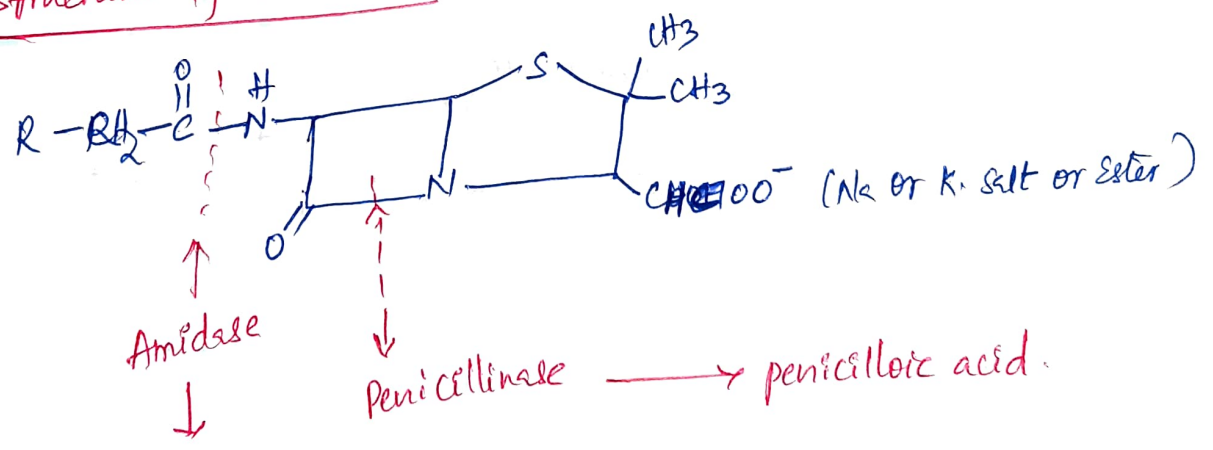 CH3
O H S CH3
R - CH2 - C - N
N COO⁻ (Na or K. Salt or Ester)
O
Amidase
Penicillinase → penicilloic acid.